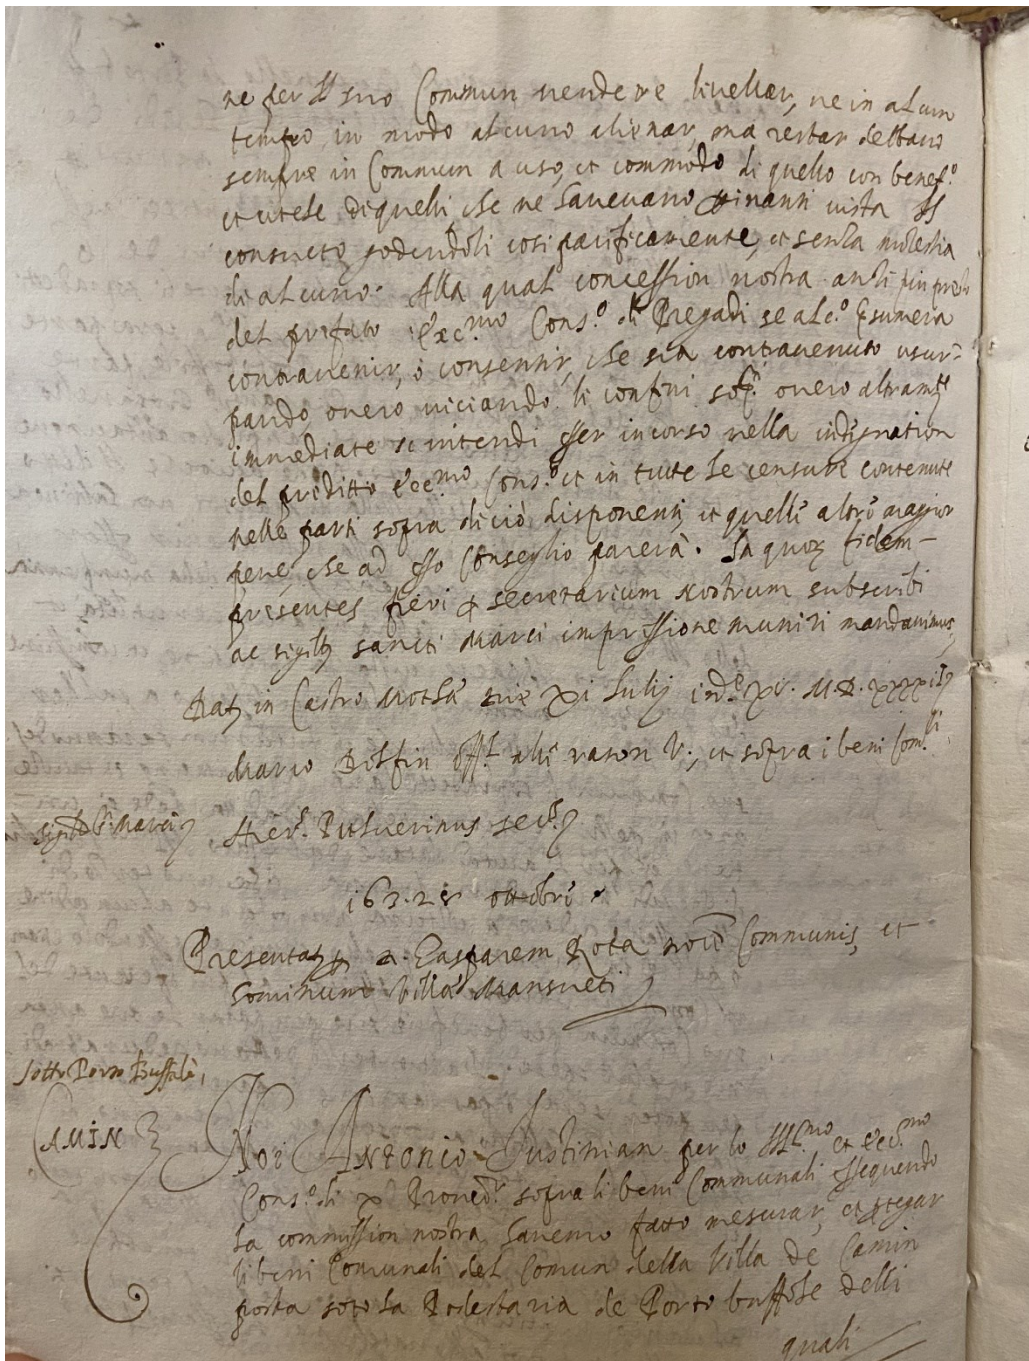 ne per il suo Commun vendere livellar, ne in alcun
tempo in modo alcuno alienar, ma restar debbano
sempre in Commun a uso, et commodo di quello con benef.o
et utele di quelli, che ne havevano p inanti iusta il
consueto godendoli cosi pacificamente, et senza molestia
di alcuno. Alla qual concession nostra anti
del prefato Ecc.mo Cons.o di Pregadi se alc.o p sumerà
contravenir, ò consentir, che sia contravenuto usur-
pando overo viciando li confini overo altram.te
immediate se intendi esser incorso nella indignation
del preditto Ecc.mo Cons.o et in tutte le censure contenute
nelle parti sopra di ciò disponenti et quelle altre maggior
pene, che ad esso Conseglio parerà. In quor fidem
presentes fieri et secretarium nostrum subscribi
ac sigillo sancti Marci impressione muniri mandavimus,
Dat in Castro Mothae die xi Iulij ind.e xv. M.D.xxxxij
Marco Dolfin Off.l alle rason V., et sopra i beni Com.li
sigill S. Marci Hier. Pulverinus sec.s
163.28 ottobre.
Presentat p a. Gasparem Rota no.e Communis, et
hominum Villae Mansueti
sotto Porto Buffalè,
CAMIN Noi Antonio Iustinian per lo Ill.mo et Ecc.mo
Cons.o di x Proved.r sopra li beni Communali essequendo
la commission nostra havemo fatto mesurar, et pregar
li beni Comunali del Comun della Villa de Camin
posta soto la Podestaria de Porto buffole delli
quali